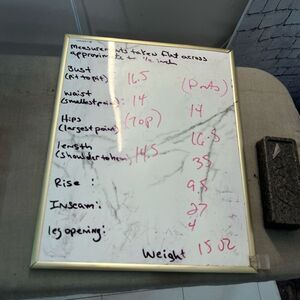 Measurements taken flat across
approximate to 1/2 inch
Bust
(Pit to pit): 16.5 (Pants)
Waist
(smallest point): 14 14
Hips (Top)
(largest point) 16.5
Length
(shoulder to hem) 14.5 35
Rise : 9.5
Inseam: 27
leg opening: 4
Weight 15 oz